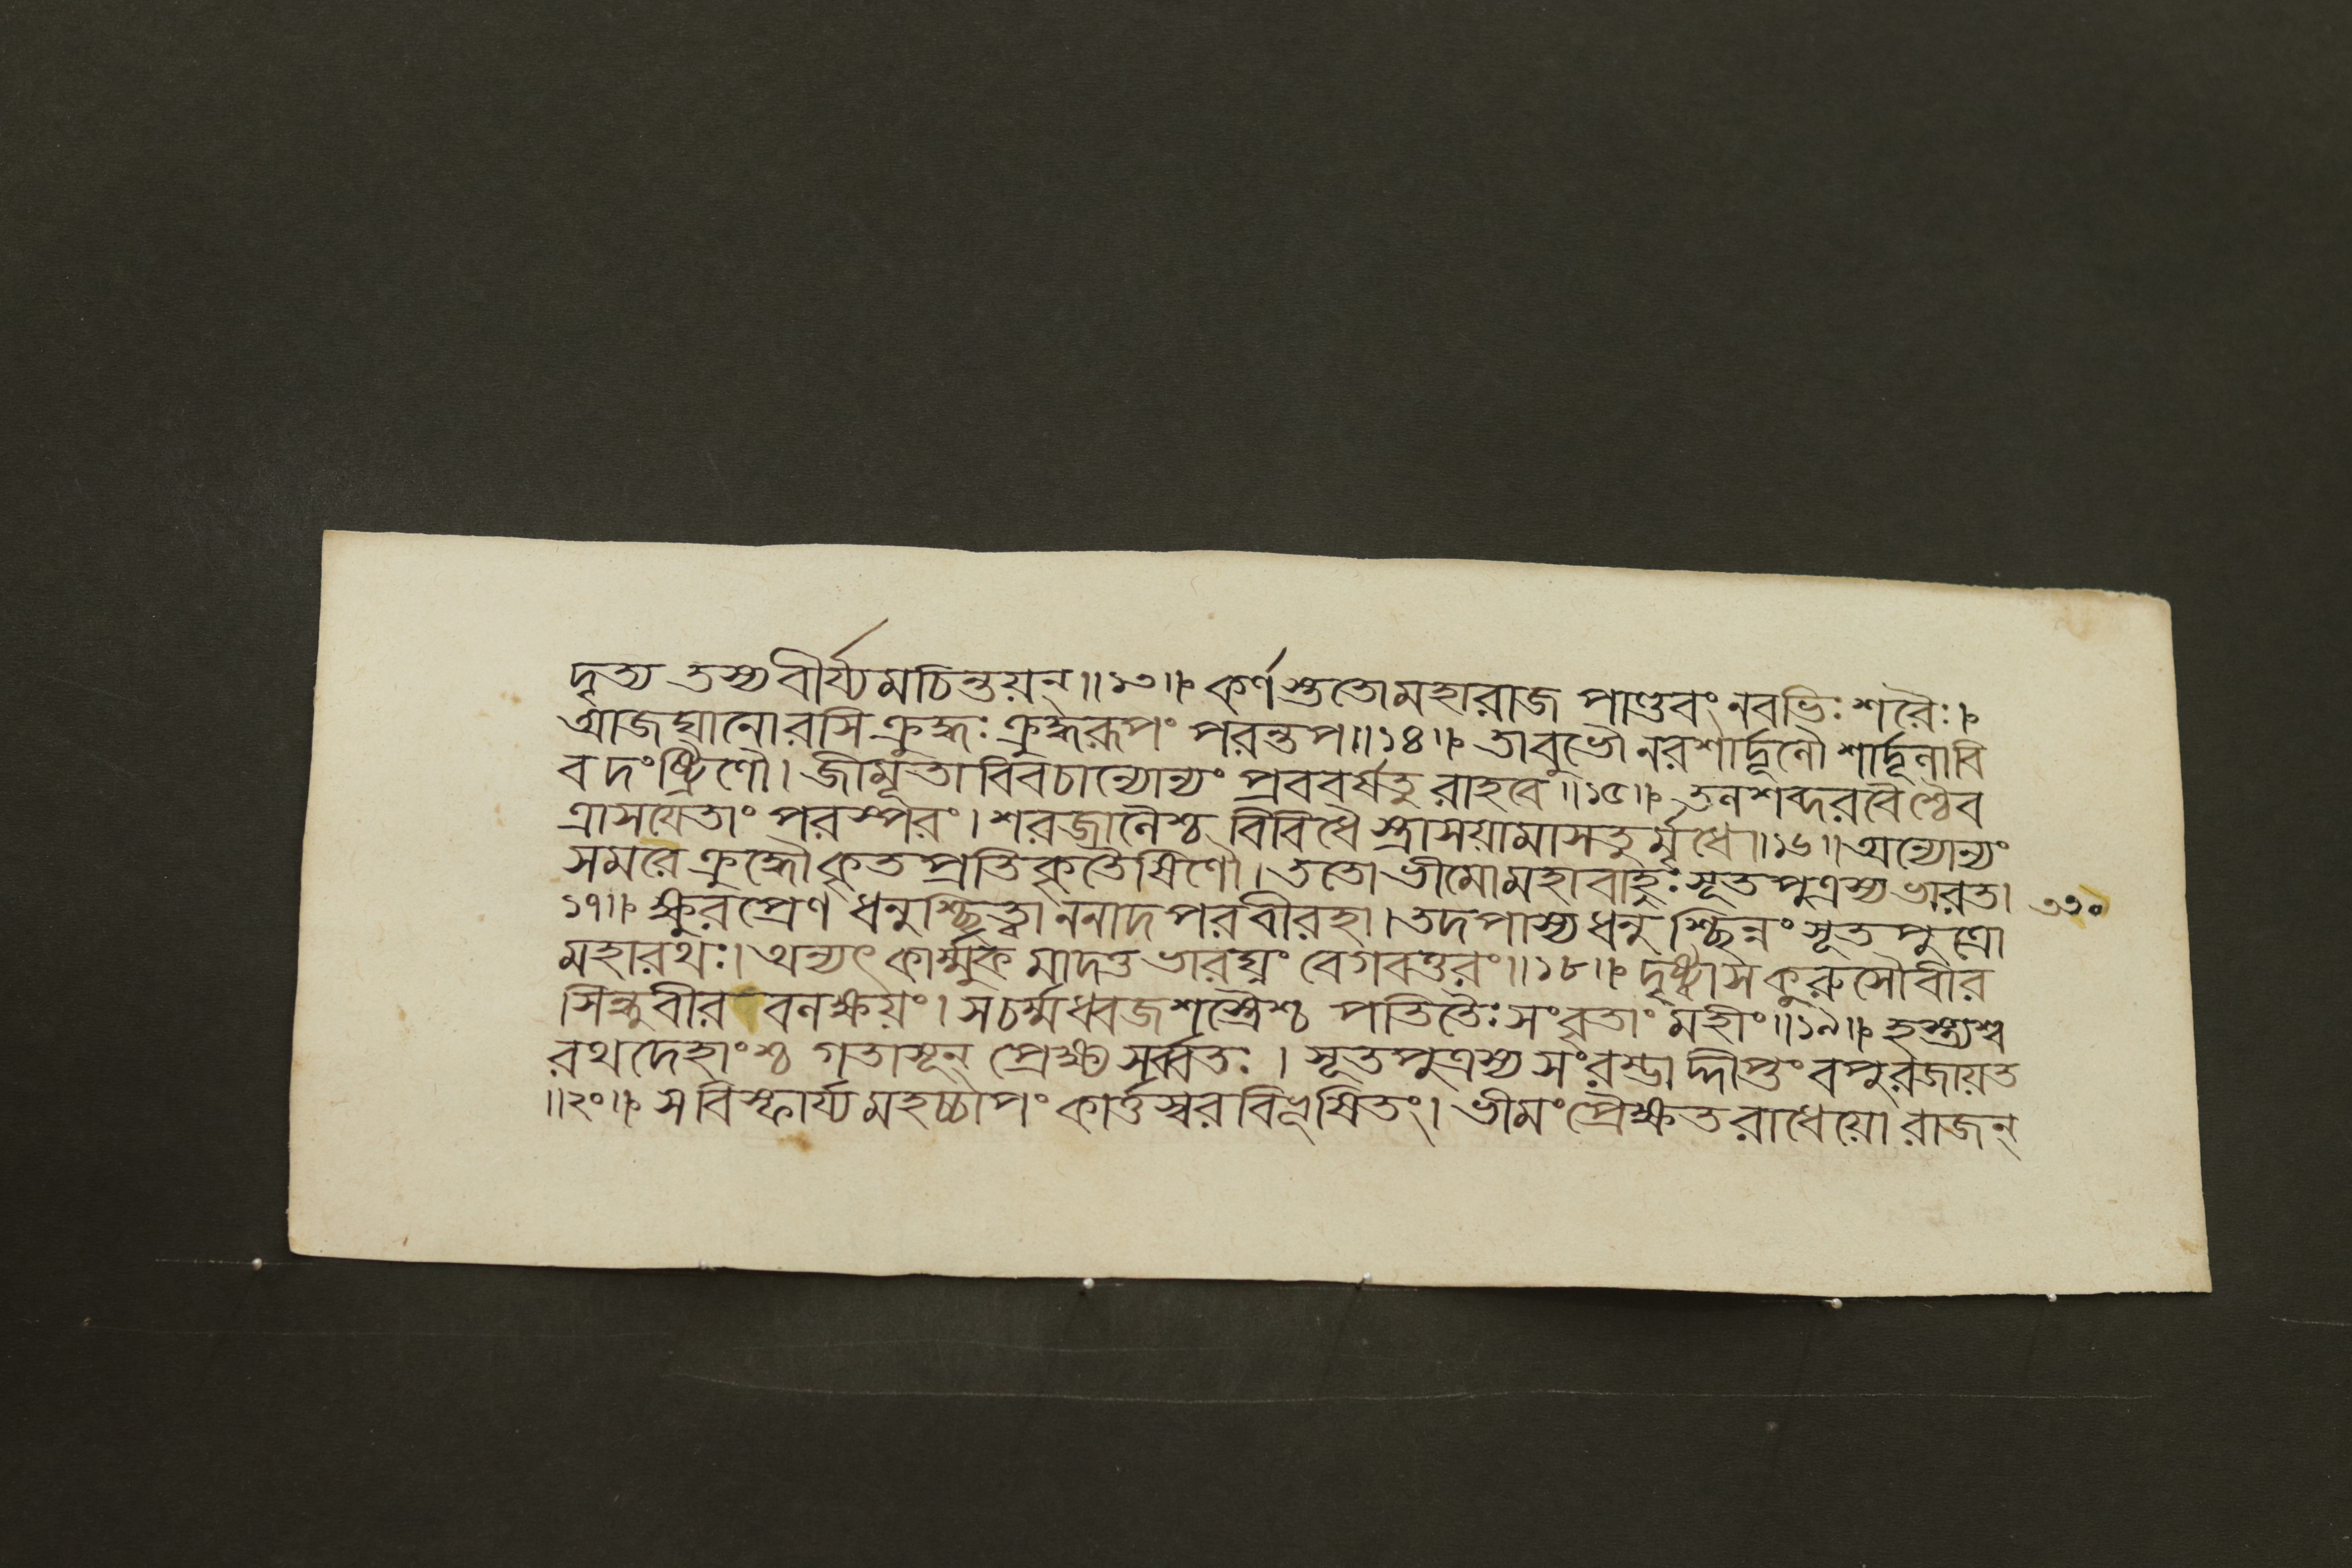 দৃত্য তস্য বীর্য্যমচিন্তয়ন্॥১৩॥ কর্ণস্তুতো মহারাজ পাণ্ডবং নবভিঃ শরৈঃ।
আজঘানোরসি ক্রুদ্ধঃ ক্রুদ্ধরূপং পরন্তপ॥১৪॥ তাবুভৌ নরশার্দ্দূলৌ শার্দ্দূলাবি
ব দংষ্ট্রিণৌ। জীমূতাবিবচান্যোন্যং প্রববর্ষতুরাহবে॥১৫॥ তলশব্দরবৈশ্চৈব
ত্রাসযেতাং পরস্পরং। শরজালৈশ্চ বিবিধৈস্ত্রাসয়ামাসতুর্মৃধে॥১৬॥ অন্যোন্যং
সমরে ক্রুদ্ধৌ কৃতপ্রতিকৃতৈষিণৌ। ততো ভীমো মহাবাহুঃ সূতপুত্রস্য ভারত।
৩৩০
১৭॥ ক্ষুরপ্রেণ ধনুশ্ছিত্ত্বা ননাদ পরবীরহা। তদপাস্য ধনুশ্ছিন্নং সূতপুত্রো
মহারথঃ। অন্যৎ কার্ম্মুকমাদত্ত ভারঘ্নং বেগবত্তরং॥১৮॥ দৃষ্ট্বা স কুরুসৌবীর
সিন্ধুবীর বলক্ষয়ং। সচর্ম্মধ্বজশস্ত্রৈশ্চ পতিতৈঃ সংবৃতাং মহীং॥১৯॥ হস্ত্যশ্ব
রথদেহাংশ্চ গতাসূন্ প্রেক্ষ্য সর্ব্বতঃ। সূতপুত্রস্য সংরম্ভাদ্দীপ্তং বপুরজায়ত
॥২০॥ স বিস্ফার্য্য মহচ্চাপং কার্ত্তস্বরবিভূষিতং। ভীমং প্রৈক্ষত রাধেয়ো রাজন্